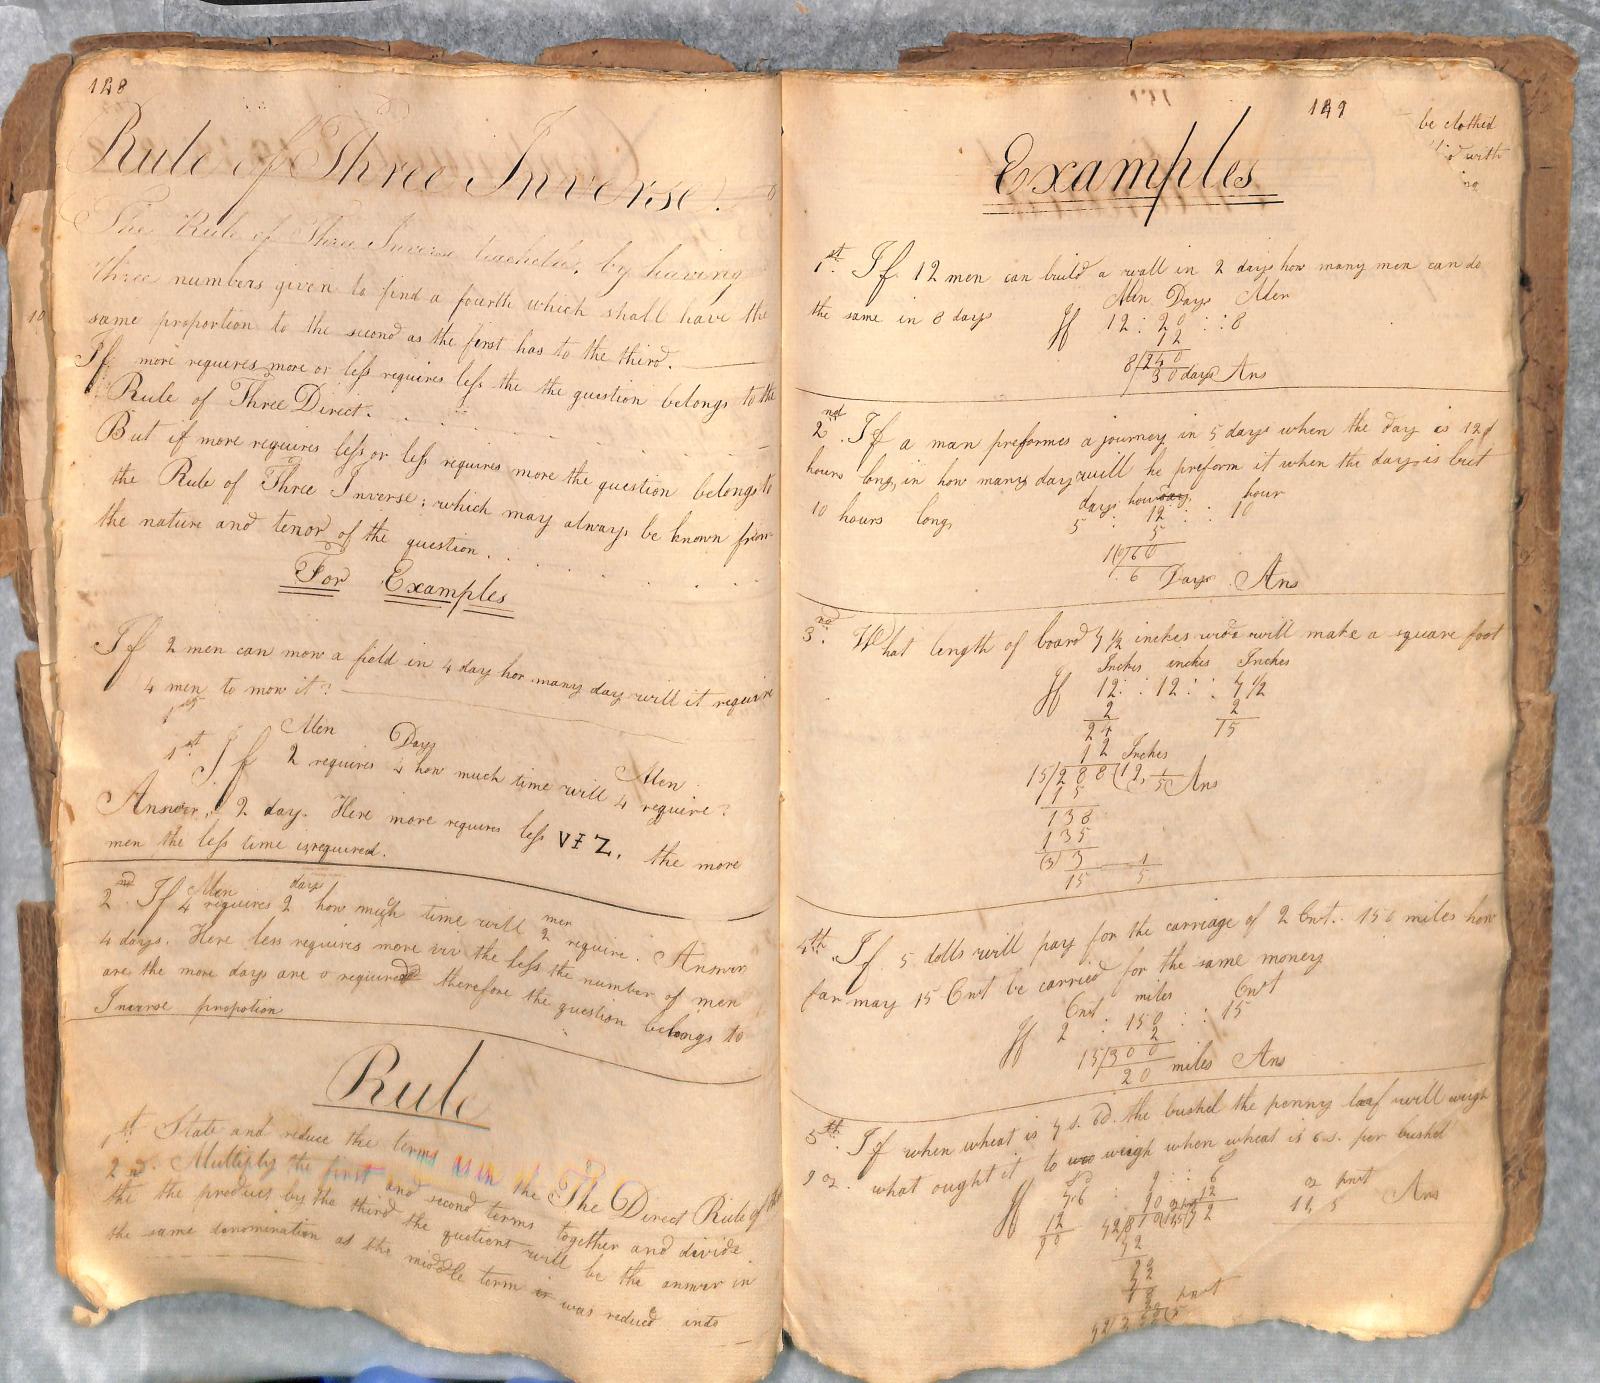 148
Rule of Three Inverse.
The Rule of Three Inverse teacheth, by having
three numbers given to find a fourth which shall have the
same proportion to the second as the first has to the third.
If more requires more or less requires less the the question belongs to the
Rule of Three Direct.
But if more requires less or less requires more the question belongs to
the Rule of Three Inverse; which may always be known from
the nature and tenor of the question.
For Examples
If 2 men can mow a field in 4 day how many day will it require
4 men to mow it?
1st
Men Days Men
1st If 2 requires 4 how much time will 4 require?
Answer, 2 day. Here more requires less VIZ. the more
men the less time is required.
Men days men
2nd If 4 requires 2 how much time will 2 require. Answer
4 days. Here less requires more viv the less the number of men
are the more days are o required therefore the question belongs to
Inverse propotion
Rule
1st State and reduce the terms as in the The Direct Rule of
2nd. Multiply the first and second terms together and divide
the the product by the third the quotient will be the answer in
the same denomination as the middle term is was reduced into
10
149
be clothed
with
Examples
1st. If 12 men can build a wall in 2 days how many men can do
the same in 8 days
Men Days Men
If 12 : 20 : : 8
12
8/240
30 days Ans
2nd. If a man preformes a journey in 5 days when the day is 12
hours long, in how many day will he preform it when the day is but
10 hours long,
days hour day, hour
5 : 12 : : 10
5
10/60
6 Days Ans
3nd. What length of board 7 1/2 inches wide will make a square foot
Inches inches Inches
If 12 : : 12 : : 7 1/2
2 2
24 15
12 Inches
15/288(19, 1/5 Ans
15
138
135
(3) 3 1
15 5
4th. If 5 dolls will pay for the carriage of 2 Cwt. 150 miles how
far may 15 Cwt be carried for the same money
Cwt miles Cwt
If 2 : 150 : : 15
2
15/300
20 miles Ans
5th. If when wheat is 7 s. 6d. the bushel the penny loaf will weigh
9 oz. what ought it to weigh when wheat is 6 s. per bushel
If 7.6 : 9 : : 6
12 90 12
90 72
oz pwt
11, 5 Ans
72
90
72
18
pwt